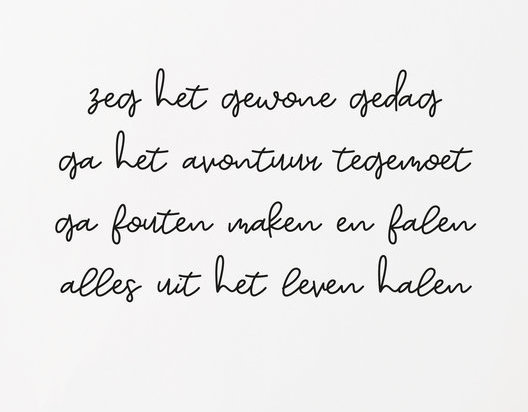 zeg het gewone gedag
ga het avontuur tegemoet
ga fouten maken en falen
alles uit het leven halen